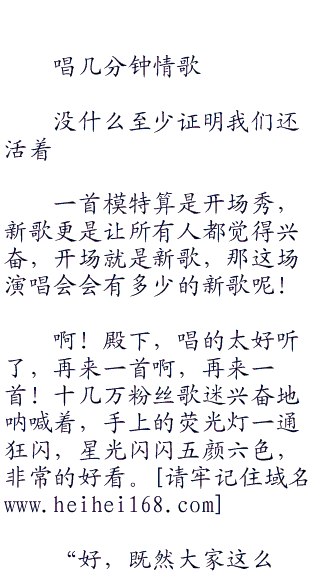 唱几分钟情歌
没什么至少证明我们还
活着
一首模特算是开场秀，
新歌更是让所有人都觉得兴
奋，开场就是新歌，那这场
演唱会会有多少的新歌呢！
啊！殿下，唱的太好听
了，再来一首啊，再来一
首！十几万粉丝歌迷兴奋地
呐喊着，手上的荧光灯一通
狂闪，星光闪闪五颜六色，
非常的好看。[请牢记住域名
www.heihei168.com]
“好，既然大家这么